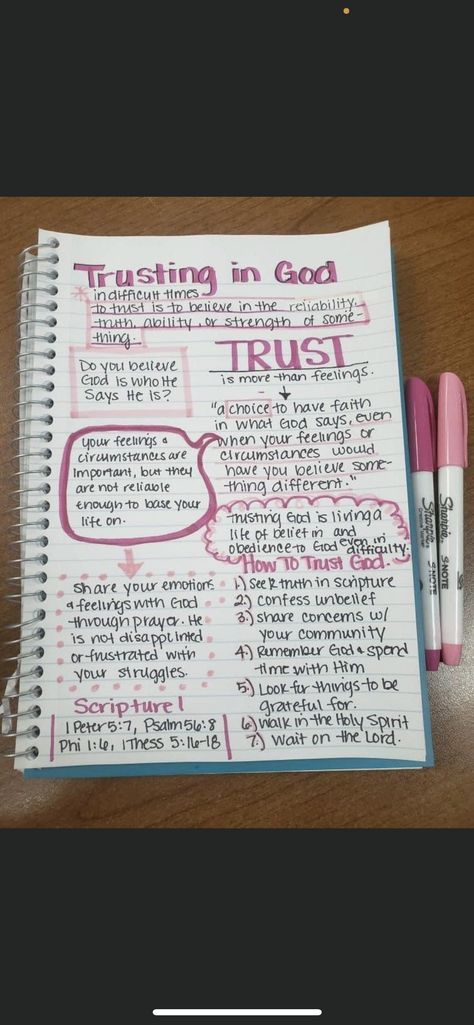 Trusting in God
in difficult times
to trust is to believe in the reliability,
truth, ability, or strength of some-
thing.
Do you believe
God is who He
Says He is?
TRUST
is more than feelings.
"a choice to have faith
in what God says, even
when your feelings or
circumstances would
have you believe some-
thing different."
Your feelings &
circumstances are
important, but they
are not reliable
enough to base your
life on.
trusting God is living a
life of belief in and
obedience to God even in
difficulty.
Share your emotions
& feelings with God
through prayer. He
is not disappinted
or frustrated with
your struggles.
How To Trust God.
1.) Seek truth in scripture
2.) Confess unbelief
3.) share concerns w/
your community
4.) Remember God & spend
time with Him
5.) Look for things to be
grateful for.
6.) Walk in the Holy Spirit
7.) Wait on the Lord.
Scripture!
1 Peter 5:7, Psalm 56:8
Phi 1:6, 1 Thess 5:16-18
Sharpie
S·NOTE
Sharpie
S·NOTE